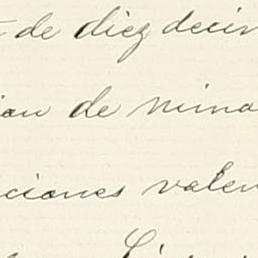 de diez decim
ian de mina
ciones valen